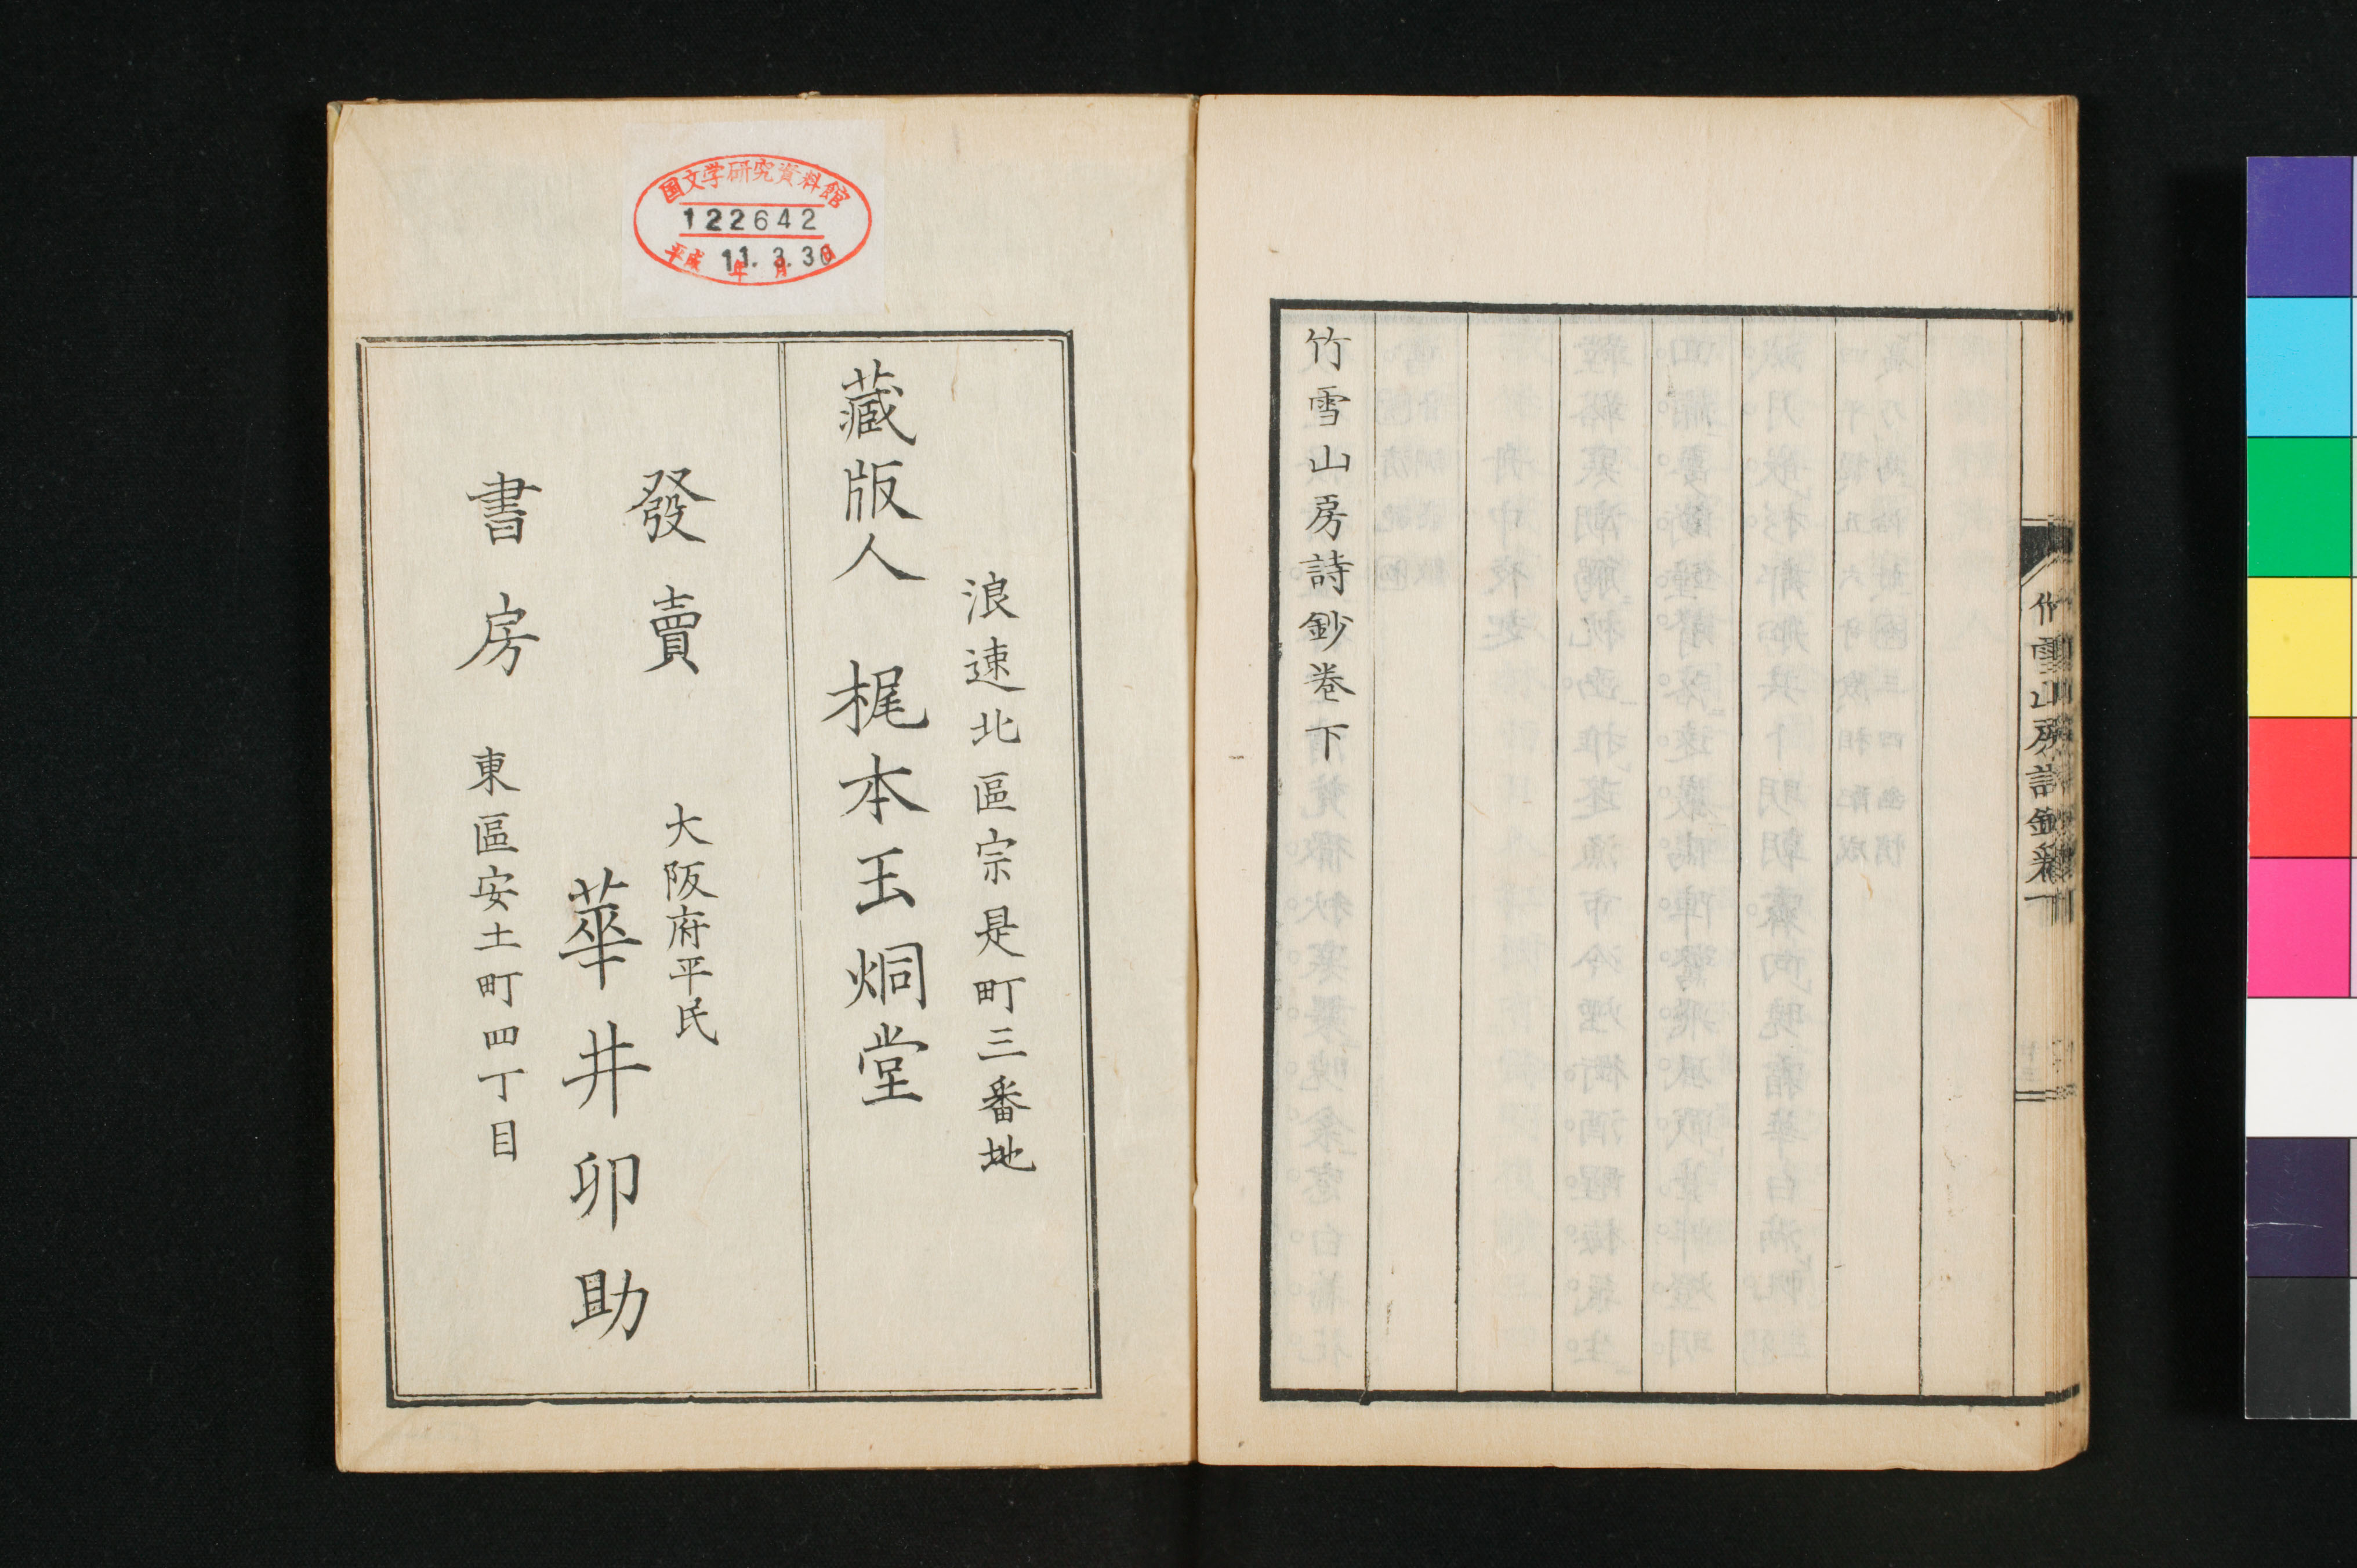 竹雪山房詩鈔卷下
竹雪山房詩鈔卷下
国文学研究資料館
122642
平成 11年 3月 30日
浪速北區宗是町三番地
藏版人 梶本玉烱堂
發賣
書房
大阪府平民
華井卯助
東區安土町四丁目